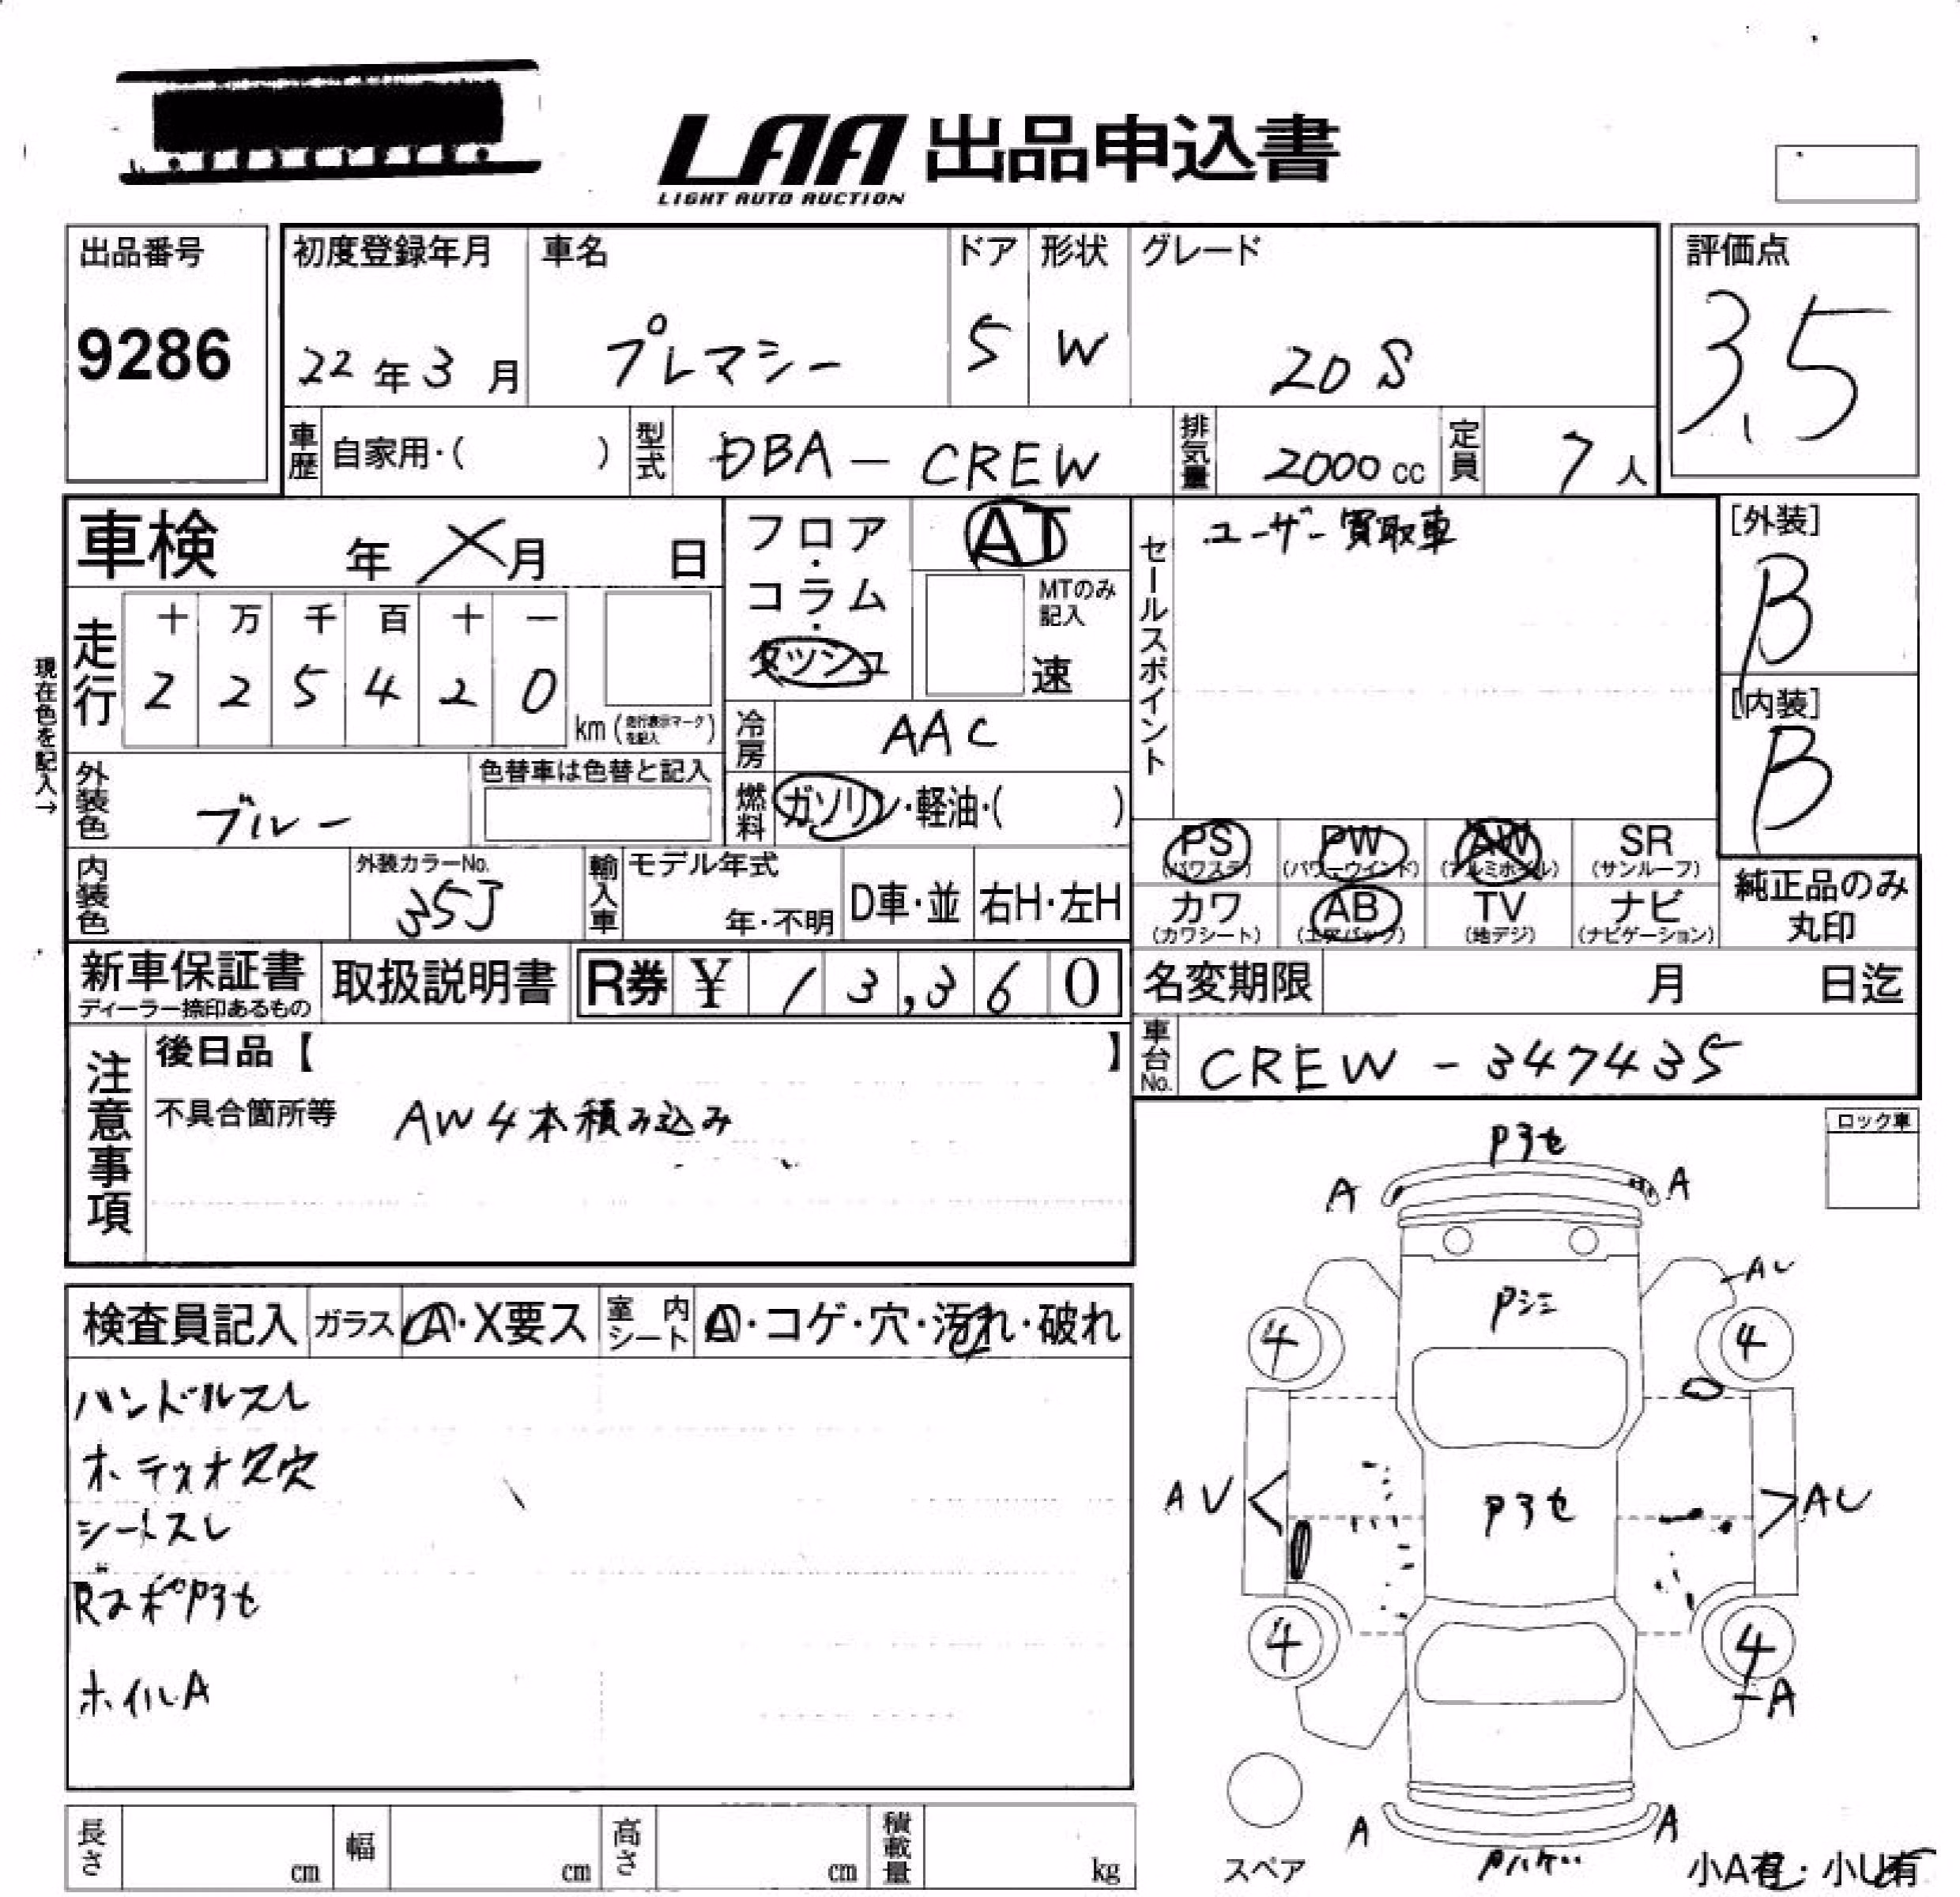 LAA 出品申込書
LIGHT AUTO AUCTION
出品番号
9286
初度登録年月 車名 ドア 形状 グレード
22年3月 プレマシー 5 W 20S
評価点
3.5
車歴 自家用・( ) 型式 DBA-CREW 排気量 2000cc 定員 7人
車検 年 月 日
フロア・コラム・ダッシュ
AT
MTのみ記入
速
セールスポイント
ユーザー買取車
[外装]
B
[内装]
B
現在色を記入→
走行
十 万 千 百 十 一
2 2 5 4 2 0
km(走行表示マークを記入)
冷房 AAC
外装色 ブルー
色替車は色替と記入
燃料 ガソリン・軽油・( )
内装色
外装カラーNo.
35J
輸入車 モデル年式
年・不明
D車・並
右H・左H
PS PW AW SR
(パワステ) (パワーウインド) (アルミホイル) (サンルーフ)
カワ AB TV ナビ
(カワシート) (エアバッグ) (地デジ) (ナビゲーション)
純正品のみ
丸印
新車保証書
ディーラー捺印あるもの
取扱説明書
R券 ¥13,360
名変期限 月 日迄
車台No. CREW-347435
注意事項
後日品【 】
不具合箇所等 AW4本積み込み
ロック車
検査員記入 ガラス A・X要ス 室内シート A・コゲ・穴・汚れ・破れ
ハンドルスレ
シートスレ
ホイルA
Pヨセ
A A
AU
Pシミ
4 4
AU Pヨセ AU
4 4
A
A A
Pハゲ
スペア
小A有・小U有
長さ cm 幅 cm 高さ cm 積載量 kg